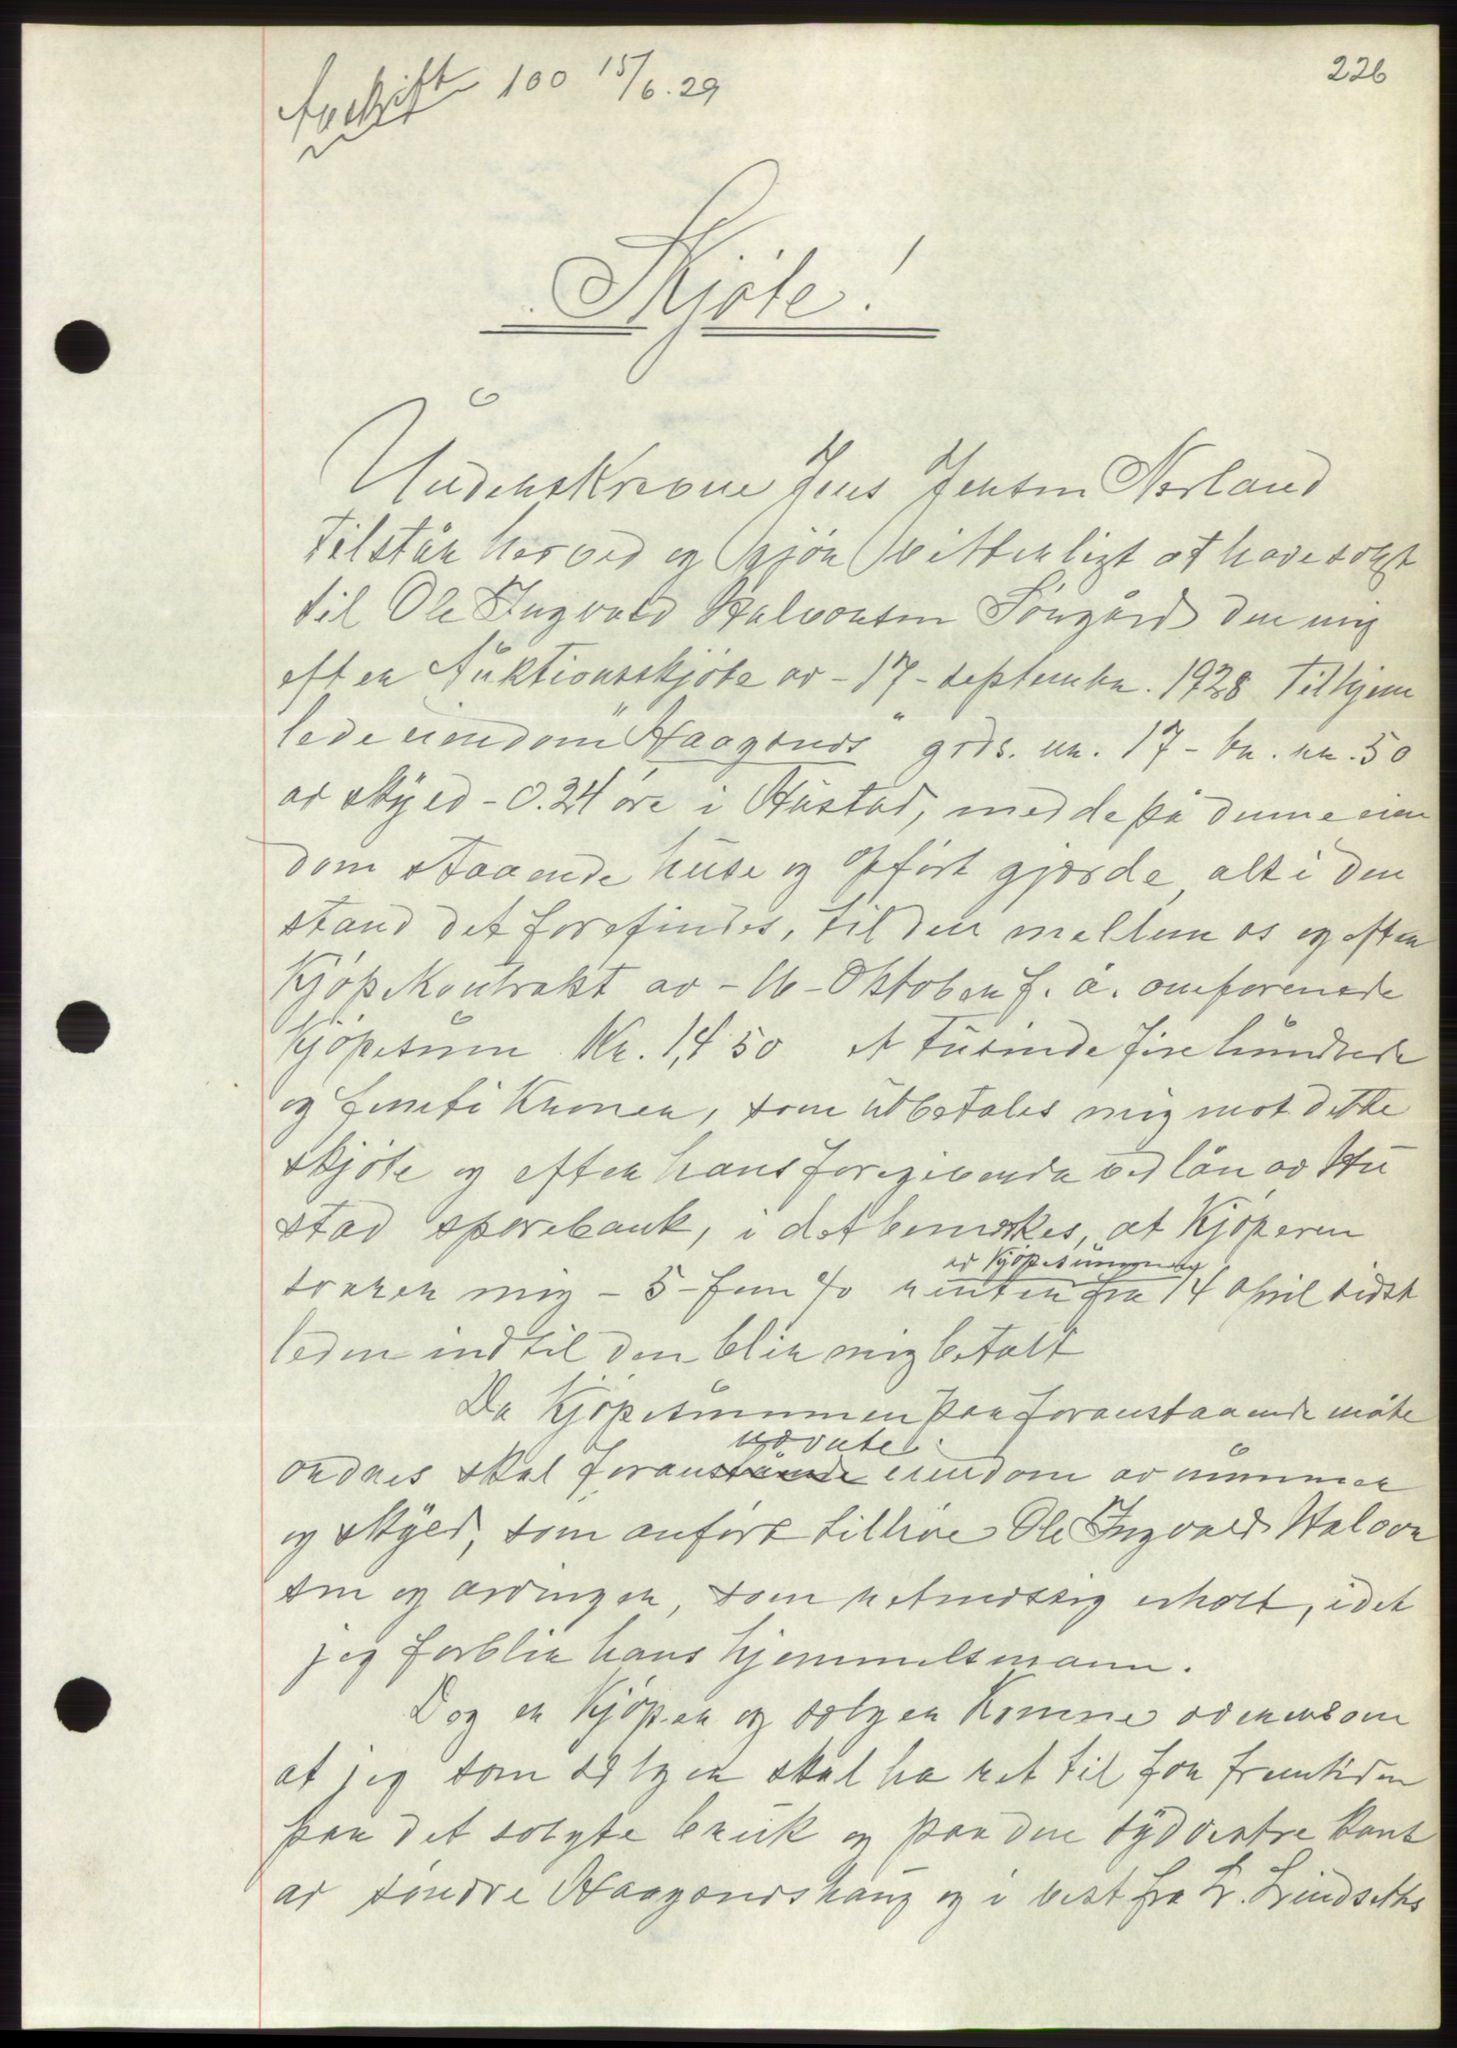 226
Avskrift 100 15/6.29
Skjöte!
Underskrevne Jens Jensen Nerland
tilstår herved og gjör vitterligt at have solgt
til Ole Ingvald Halvorsen Söngård den mig
efter Auktionsskjöte av - 17 - september. 1928 tilhjem
lede eiendom "Haagönes" grds. nr. 17 - br. nr. 50
av skyld - 0.24 öre i Hustad, med de på denne eien
dom staaende huse og opfört gjærde, alt i den
stand det forefindes, til den mellem os og efter
Kjöpekontrakt av - 16 - Oktober f. å. omforenede
Kjöpesum Kr. 1,450 et tusinde fire hundrede
og femti Kroner, som utbetales mig mot dette
skjöte og efter hans foregivende ved lån av Hu
stad sparebank, i det bemerkes, at Kjöperen
av Kjöpesummen
svarer mig - 5 - fem % renter fra 14 April sidst
leden indtil den blir mig betalt
Da Kjöpesummen paa foranstaaende måte
nævnte
ordnes skal foranstående eiendom av nummer
og skyld, som anfört tilhöre Ole Ingvald Halvor
sen og arvinger, som retmæssig erholt, idet
jeg forblir hans hjemmelsmann.
Dog er Kjöper og sælger Komne overens om
at jeg som sælger skal ha ret til for fremtiden
paa det solgte bruk og paa den sydvestre Kant
av söndre Haagöneshaug og i vest fra L. Lindseths